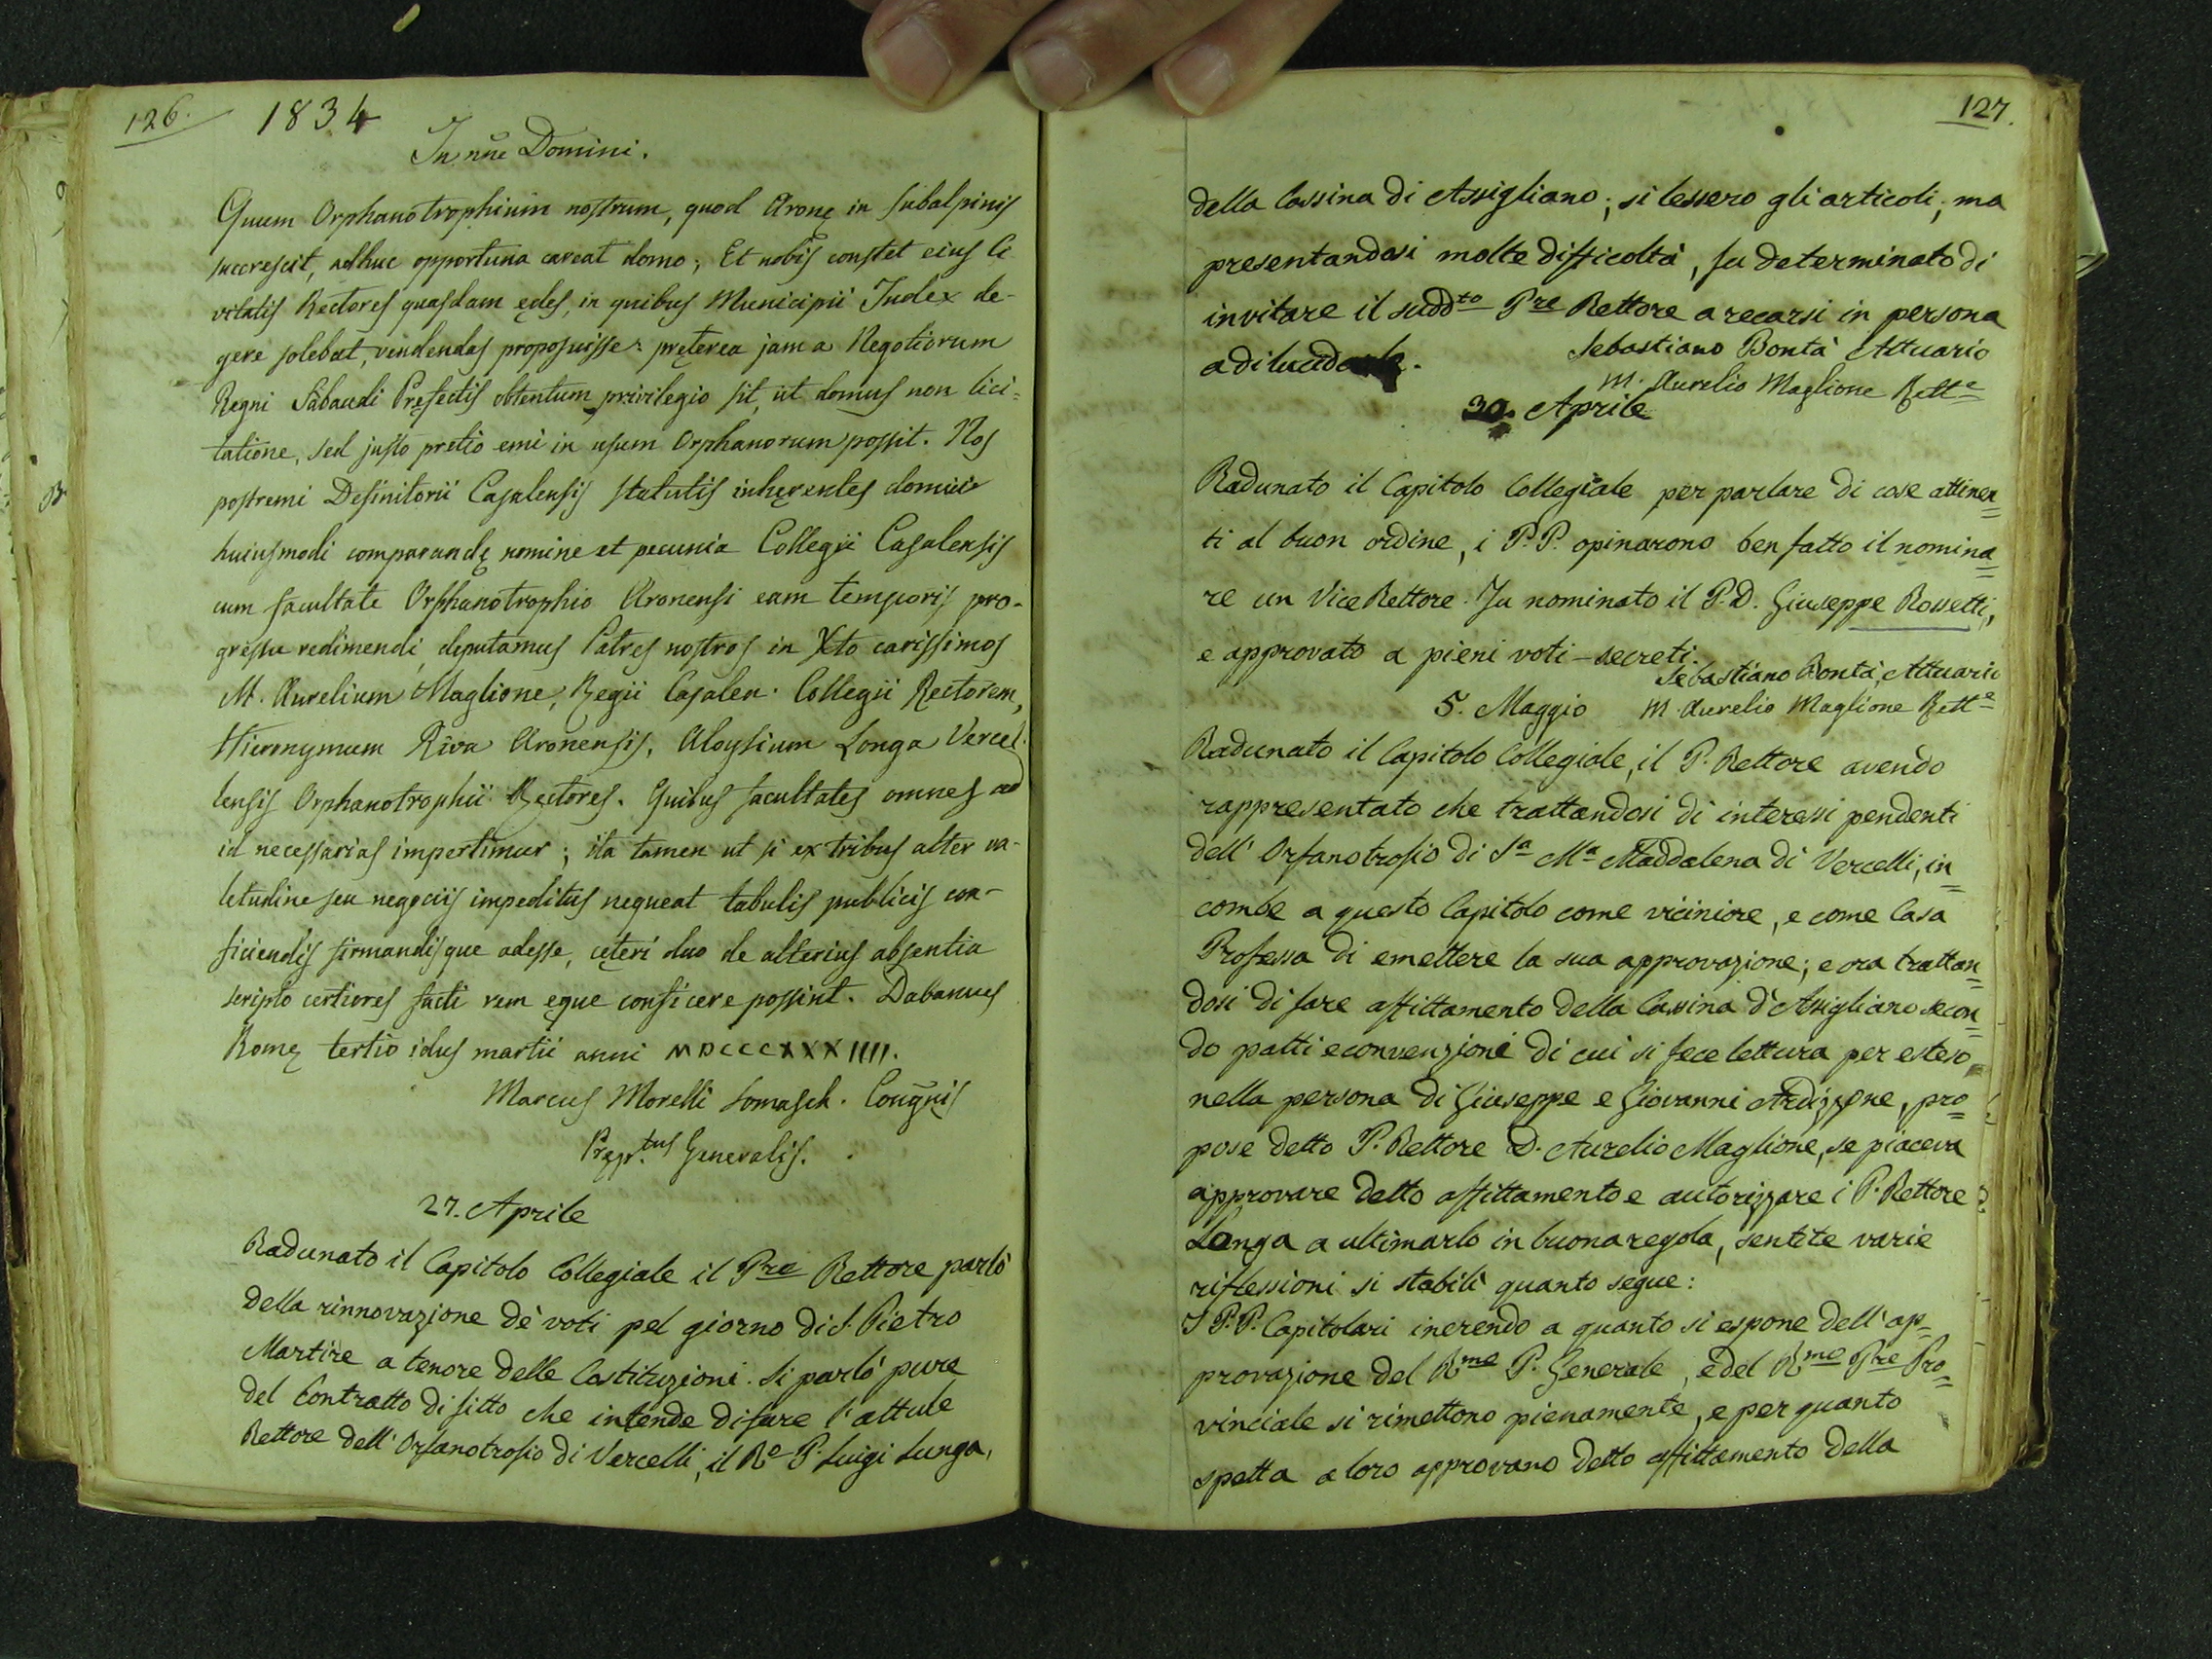 126.
1834
In nñe Domini.
Quum Orphanotrophium nostrum, quod Aronę in subalpinis
succrescit, adhuc opportuna careat domo; Et nobis constet eius Ci
vitatis Rectores quasdam ędes, in quibus Municipii Judex de-
gere solebat, vendendas proposuisse: pręterea jam a Negotiorum
Regni Sabaudi Pręfectis obtentum privilegio sit, ut domus non lici=
tatione, sed justo pretio emi in usum Orphanorum possit. Nos
postremi Definitorii Casalensis statutis inhęrentes domui
huiusmodi comparandę nomine et pecunia Collegii Casalensis
cum facultate Orphanotrophio Aronensi eam temporis pro-
gressu redimendi, deputamus Patres nostros in Xto carissimos
M. Aurelium Maglione, Regii Casalen. Collegii Rectorem,
Hieronymum Riva Aronensis, Aloysium Longa Vercel
lensis Orphanotrophii Rectores. Quibus facultates omnes ad
id necessarias impertimur; ita tamen ut si ex tribus alter va-
letudine seu negociis impeditus nequeat tabulis publicis con-
ficiendis firmandisque adesse, cęteri duo de alterius absentia
scripto certiores facti rem ęque conficere possint. Dabamus
Romę tertio idus martii anni MDCCCXXXIIII.
Marcus Morelli Somasch. Cougñis
Pręp.tus Generalis.
27. Aprile
Radunato il Capitolo Collegiale il Pre Rettore parlò
della rinnovazione de' voti pel giorno di S. Pietro
Martire a tenore delle Costituzioni. Si parlò pure
del Contratto di fitto che intende di fare l'attule
Rettore dell'Orfanotrofio di Vercelli, il Ro P. Luigi Lunga,
127.
della Cassina di Assigliano; si lessero gli articoli; ma
presentandosi molte difficoltà, fu determinato di
invitare il suddto Pre Rettore a recarsi in persona
a
Sebastiano Bontà Attuario
M. Aurelio Maglione Rette
30. Aprile
Radunato il Capitolo Collegiale per parlare di cose attinen=
ti al buon ordine, i P.P. opinarono ben fatto il nomina=
re un Vice Rettore. Fu nominato il P. D. Giuseppe Rossetti,
e approvato a pieni voti-secreti.
Sebastiano Bontà, Attuario
5. Maggio M. Aurelio Maglione Rette
Radunato il Capitolo Collegiale, il P. Rettore avendo
rappresentato che trattandosi di interessi pendenti
dell'Orfanotrofio di Sa Ma Maddalena di Vercelli, in=
combe a questo Capitolo come viciniore, e come Casa
Professa di emettere la sua approvazione; e ora trattan=
dosi di fare affittamento della Cassina d'Assigliano secon=
do patti e convenzioni di cui si fece lettura per esteso
nella persona di Giuseppe e Giovanni Ardizzone, pro=
pose detto P. Rettore D. Aurelio Maglione, se piaceva
approvare detto affittamento e autorizzare i P. Rettore
Longa a ultimarlo in buona regola, sentite varie
riflessioni si stabilì quanto segue:
I P.P. Capitolari inerendo a quanto si espone dell'ap=
provazione del Rmo P. Generale, e del Rmo Pre Pro=
vinciale si rimettono pienamente, e per quanto
spetta a loro approvano detto affittamento della